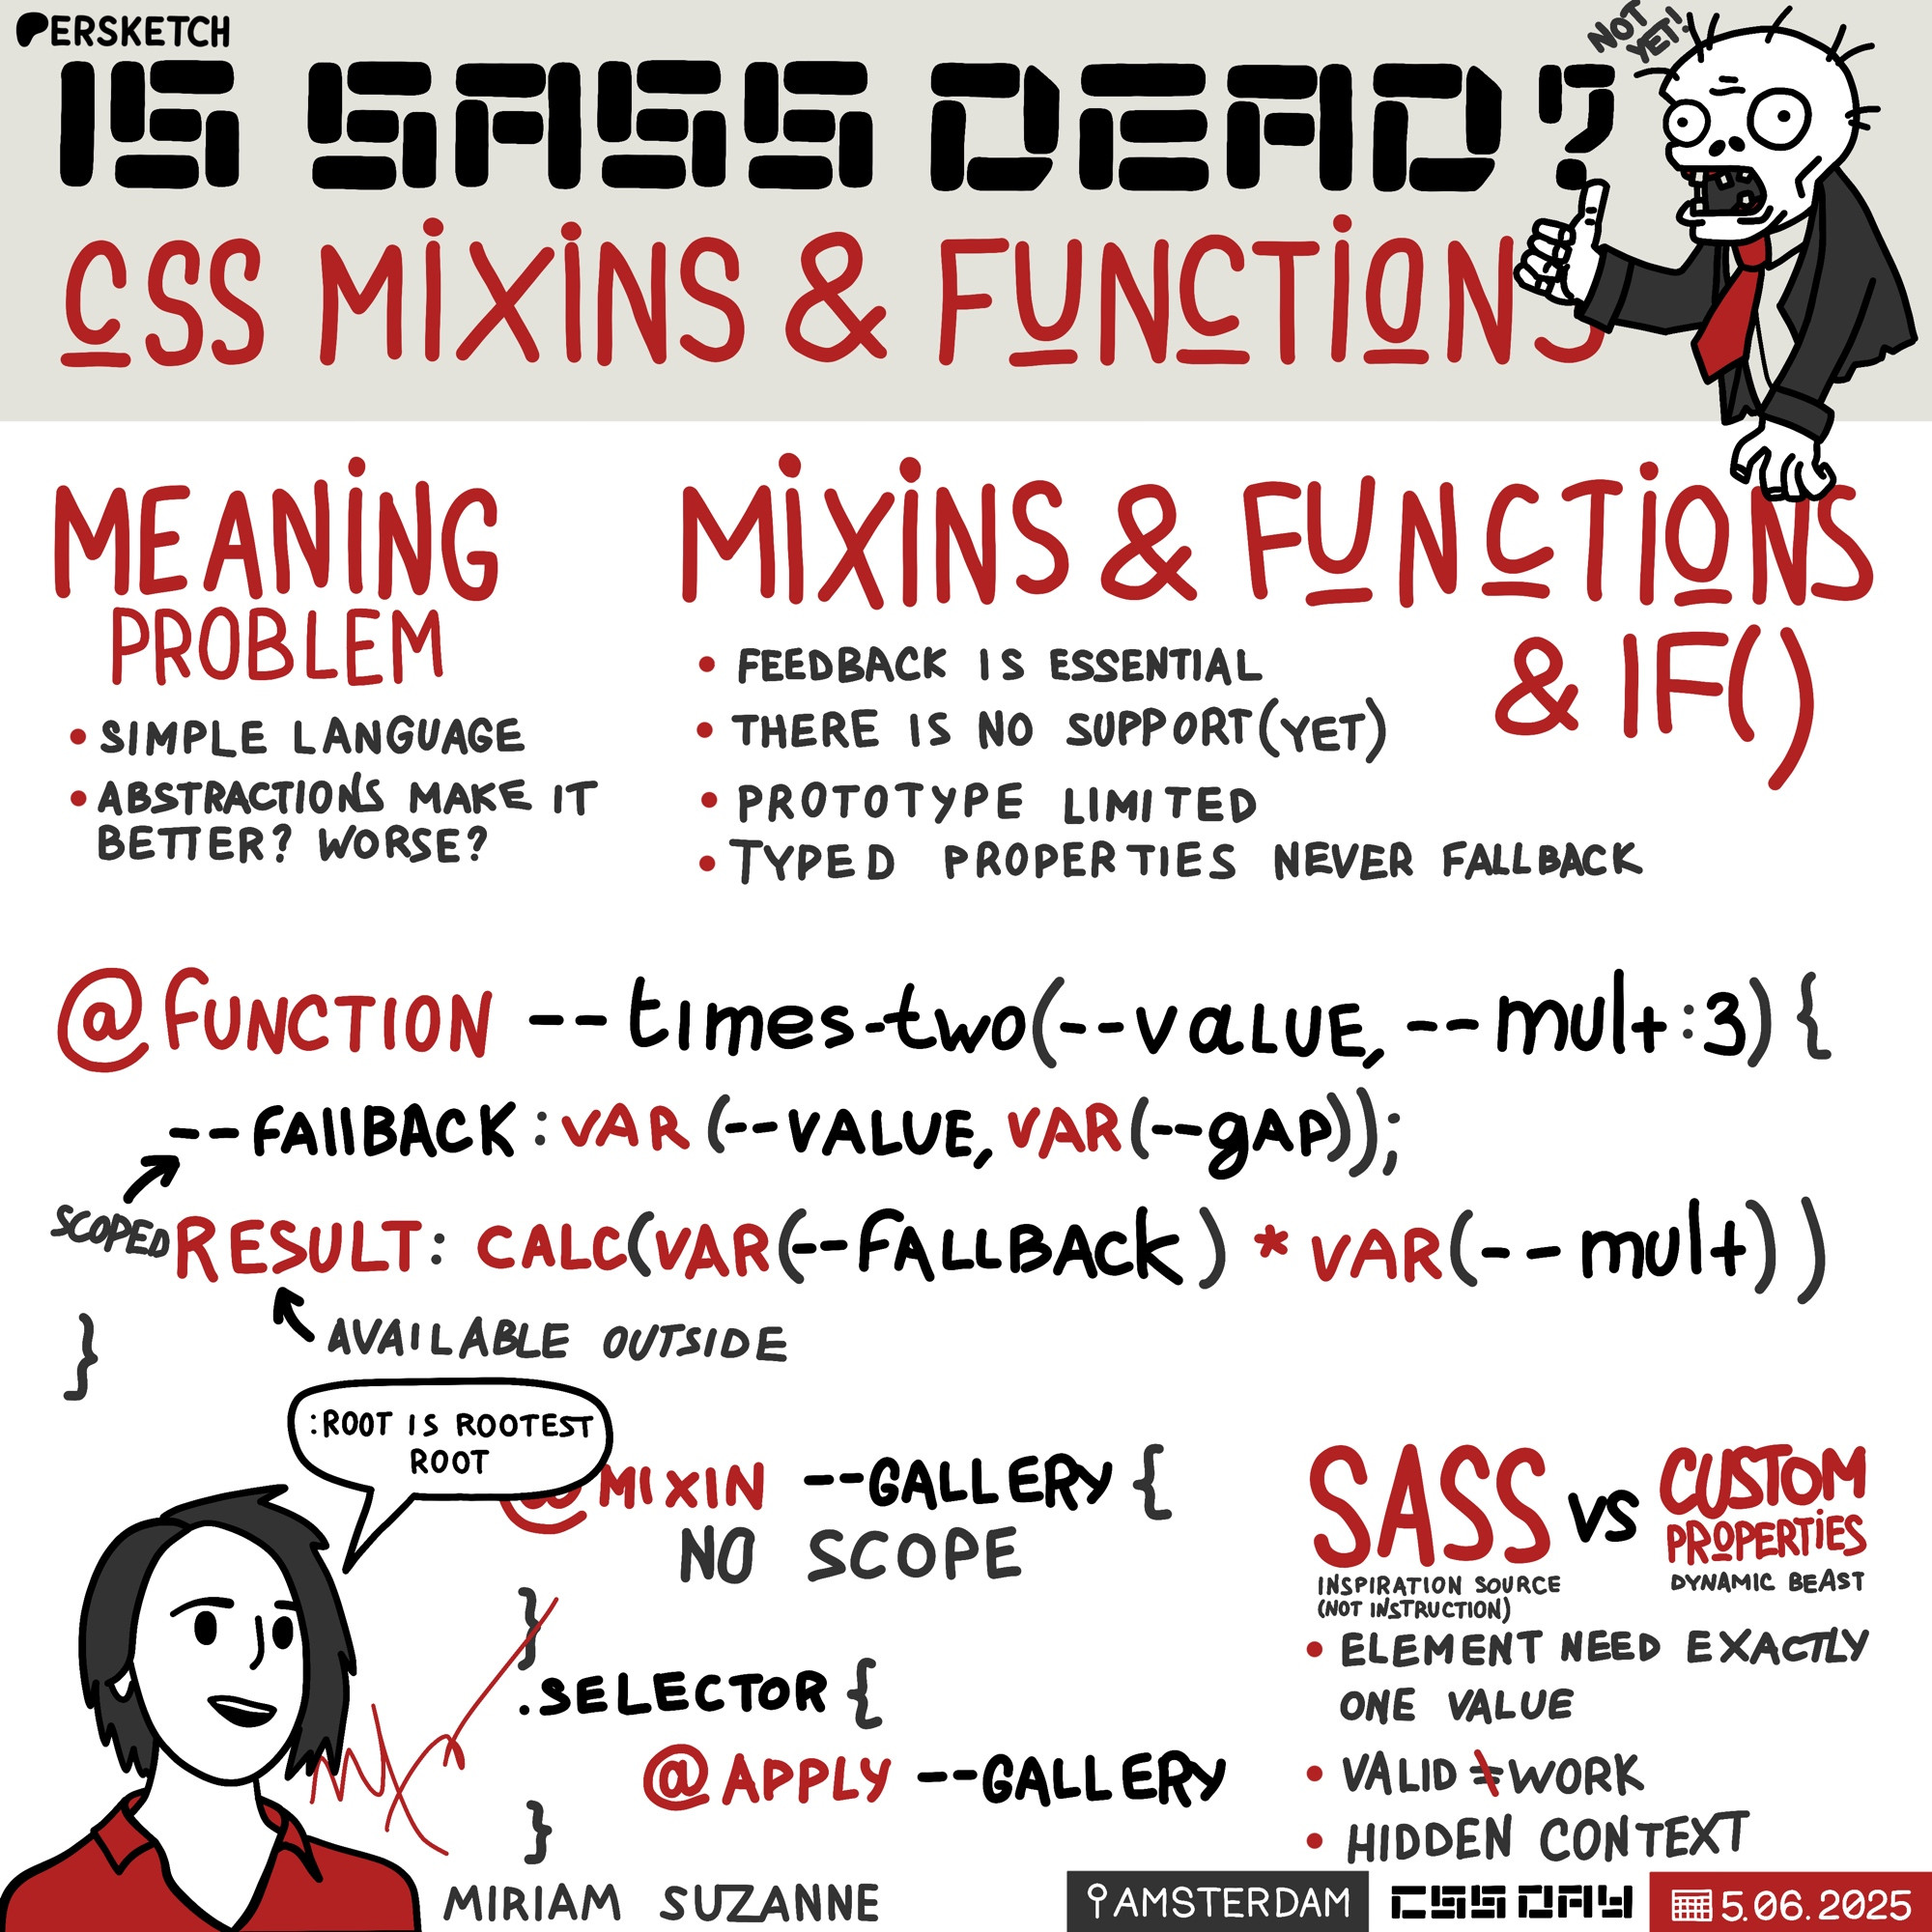 PERSKETCH
IS SASS DEAD?
NOT YET!
CSS MIXINS & FUNCTIONS
MEANING
PROBLEM
• SIMPLE LANGUAGE
• ABSTRACTIONS MAKE IT
BETTER? WORSE?
MIXINS & FUNCTIONS
& IF()
• FEEDBACK IS ESSENTIAL
• THERE IS NO SUPPORT (YET)
• PROTOTYPE LIMITED
• TYPED PROPERTIES NEVER FALLBACK
@FUNCTION --times-two(--vaLUE, --mult:3) {
--FAllBACK : VAR (--VALUE, VAR(--gAP));
SCOPED
RESULT: CALC(VAR(--FALLBACK) * VAR(--mult))
AVAILABLE OUTSIDE
}
:ROOT IS ROOTEST
ROOT
@MIXIN --GALLERY {
NO SCOPE
}
.SELECTOR {
@APPLY --GALLERY
}
MIRIAM SUZANNE
SASS VS CUSTOM
PROPERTIES
INSPIRATION SOURCE
(NOT INSTRUCTION)
DYNAMIC BEAST
• ELEMENT NEED EXACTLY
ONE VALUE
• VALID ≠ WORK
• HIDDEN CONTEXT
AMSTERDAM
CSS DAY
5.06.2025